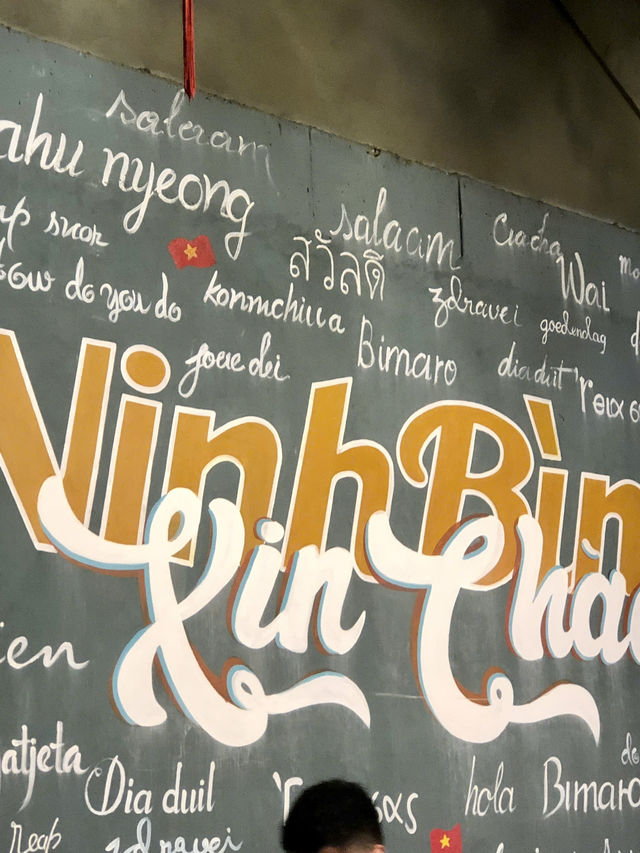 salaam
ahu nyeong
salaam
สวัสดี
how do you do
konmchiua
zdravei
Wai
goedendag
joue dei
Bimaro
dia duit
Ninh Bìn
Xin Chào
ien
atjeta
Dia duil
hola
Bimaro
reap
zdravei